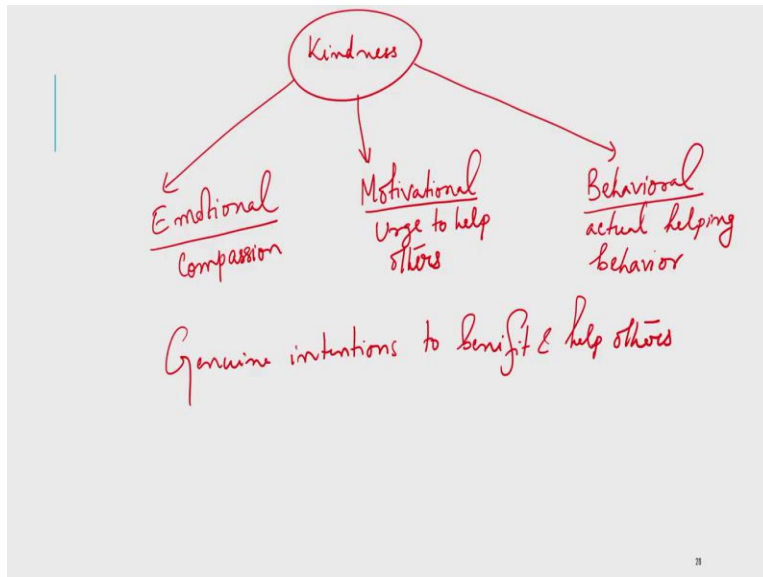 Kindness
Emotional
Compassion
Motivational
Urge to help
others
Behavioral
actual helping
behavior
Genuine intentions to benifit & help others
20